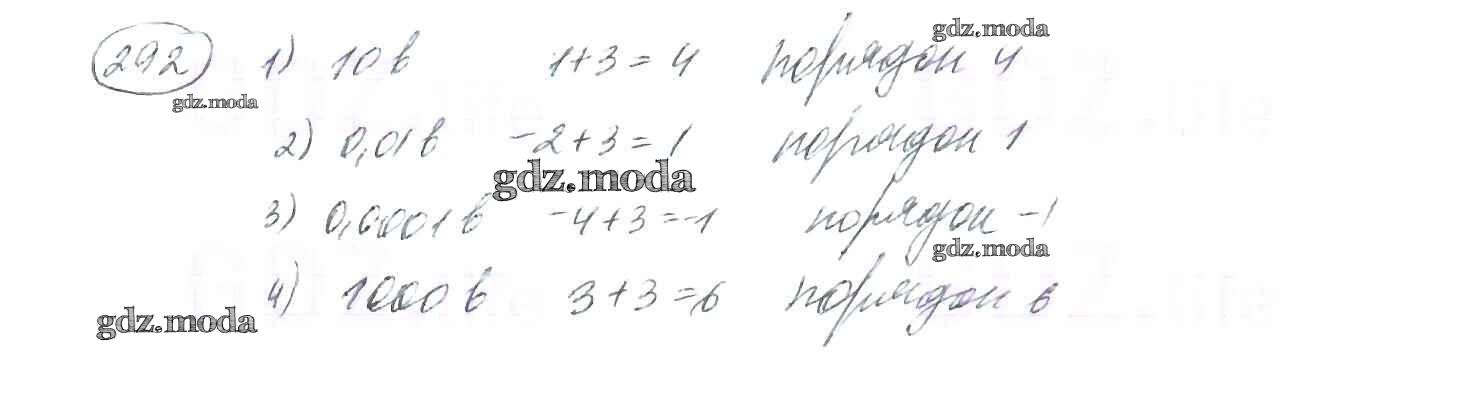 gdz.moda
292 1) 10 в 1+3=4 порядок 4
gdz.moda
2) 0,01 в -2+3=1 порядок 1
gdz.moda
3) 0,0001 в -4+3=-1 порядок -1
gdz.moda
4) 1000 в 3+3=6 порядок 6
gdz.moda